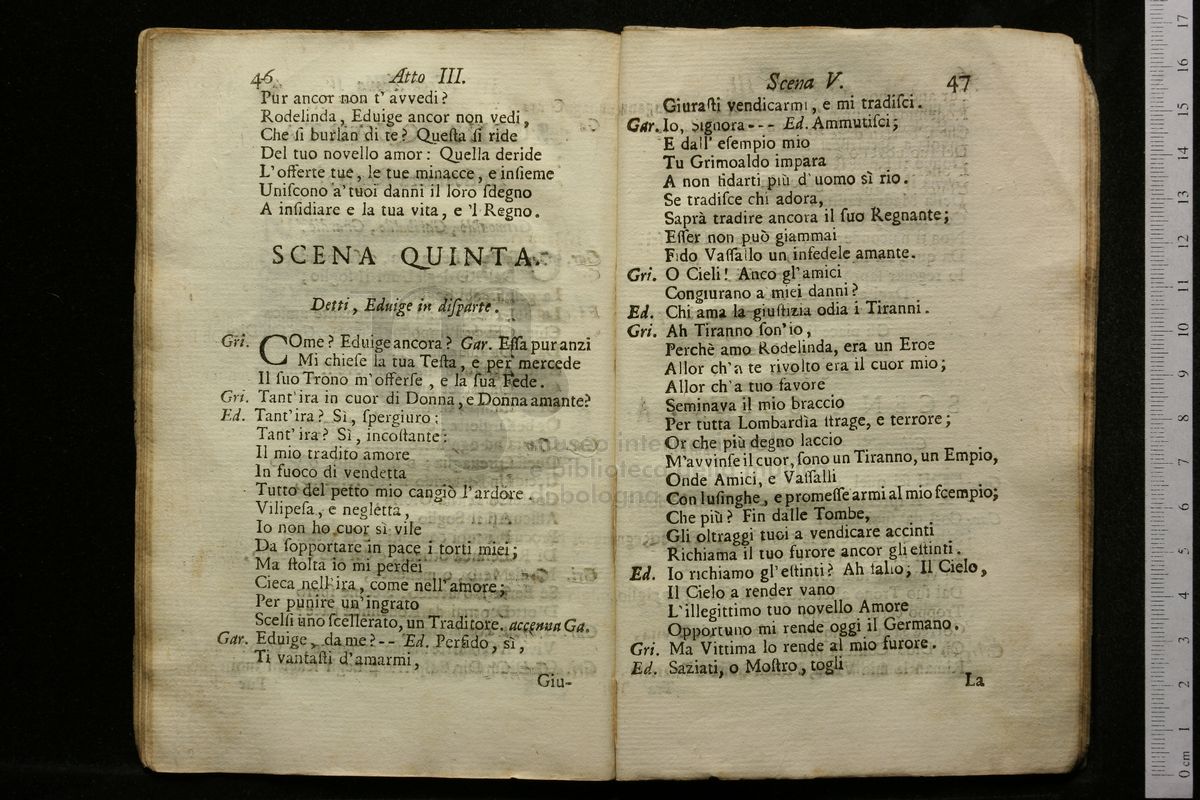 46 Atto III.
Pur ancor non t' avvedi?
Rodelinda, Eduige ancor non vedi,
Che ſi burlan di te? Queſta ſi ride
Del tuo novello amor: Quella deride
L'offerte tue, le tue minacce, e inſieme
Uniſcono a'tuoi danni il loro ſdegno
A inſidiare e la tua vita, e 'l Regno.
SCENA QUINTA.
Detti, Eduige in diſparte.
Gri. COme? Eduige ancora? Gar. Eſſa pur anzi
Mi chieſe la tua Teſta, e per mercede
Il ſuo Trono m'offerſe, e la ſua Fede.
Gri. Tant'ira in cuor di Donna, e Donna amante?
Ed. Tant'ira? Sì, ſpergiuro:
Tant'ira? Sì, incoſtante:
Il mio tradito amore
In fuoco di vendetta
Tutto del petto mio cangiò l'ardore.
Vilipeſa, e negletta,
Io non ho cuor sì vile
Da ſopportare in pace i torti miei;
Ma ſtolta io mi perdei
Cieca nell'ira, come nell'amore;
Per punire un'ingrato
Scelſi uno ſcellerato, un Traditore. accenna Ga.
Gar. Eduige, da me?-- Ed. Perfido, sì,
Ti vantaſti d'amarmi,
Giu-
Scena V. 47
Giuraſti vendicarmi, e mi tradiſci.
Gar. Io, Signora--- Ed. Ammutiſci;
E dall' eſempio mio
Tu Grimoaldo impara
A non fidarti più d'uomo sì rio.
Se tradiſce chi adora,
Saprà tradire ancora il ſuo Regnante;
Eſſer non può giammai
Fido Vaſſallo un infedele amante.
Gri. O Cieli! Anco gl'amici
Congiurano a miei danni?
Ed. Chi ama la giuſtizia odia i Tiranni.
Gri. Ah Tiranno ſon'io,
Perchè amo Rodelinda, era un Eroe
Allor ch'a te rivolto era il cuor mio;
Allor ch'a tuo favore
Seminava il mio braccio
Per tutta Lombardìa ſtrage, e terrore;
Or che più degno laccio
M'avvinſe il cuor, ſono un Tiranno, un Empio,
Onde Amici, e Vaſſalli
Con luſinghe, e promeſſe armi al mio ſcempio;
Che più? Fin dalle Tombe,
Gli oltraggi tuoi a vendicare accinti
Richiama il tuo furore ancor gli eſtinti.
Ed. Io richiamo gl'eſtinti? Ah falſo; Il Cielo,
Il Cielo a render vano
L'illegittimo tuo novello Amore
Opportuno mi rende oggi il Germano.
Gri. Ma Vittima lo rende al mio furore.
Ed. Saziati, o Moſtro, togli
La